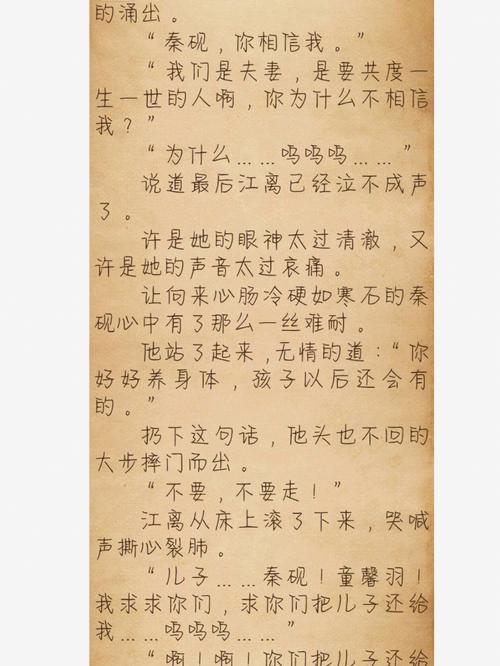 的涌出。
“秦砚，你相信我。”
“我们是夫妻，是要共度一
生一世的人啊，你为什么不相信
我？”
“为什么……呜呜呜……”
说道最后江离已经泣不成声
了。
许是她的眼神太过清澈，又
许是她的声音太过哀痛。
让向来心肠冷硬如寒石的秦
砚心中有了那么一丝难耐。
他站了起来，无情的道：“你
好好养身体，孩子以后还会有
的。”
扔下这句话，他头也不回的
大步摔门而出。
“不要，不要走！”
江离从床上滚了下来，哭喊
声撕心裂肺。
“儿子……秦砚！童馨羽！
我求求你们，求你们把儿子还给
我……呜呜呜……”
“啊！啊！你们把儿子还给